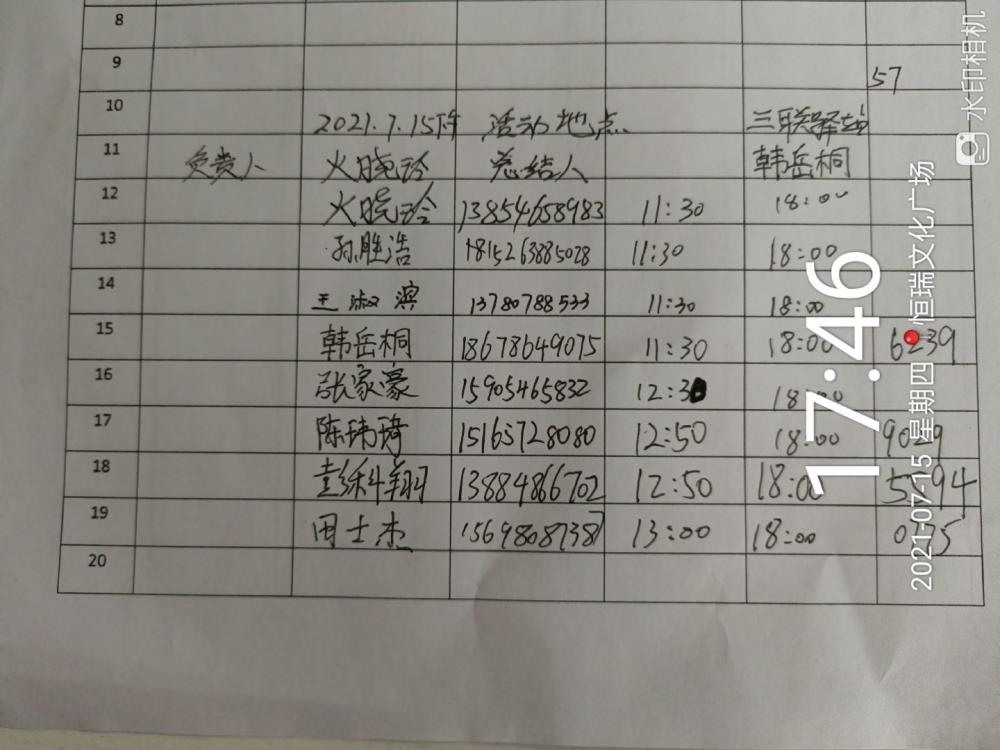 8
9 57
10 2021.7.15下午 活动地点 三联驿站
11 负责人 火晓玲 总结人 韩岳桐
12 火晓玲 13854658983 11:30 18:00
13 孙胜浩 1815263885028 11:30 18:00
14 王淑滨 13780788533 11:30 18:00
15 韩岳桐 18678649075 11:30 18:00 6239
16 张家豪 15905465832 12:30 18:00
17 陈玮琦 15165728080 12:50 18:00 9029
18 彭科翔 13884866702 12:50 18:00
19 田士杰 15698087387 13:00 18:00
20
17:46
2021-07-15 星期四 恒瑞文化广场
水印相机